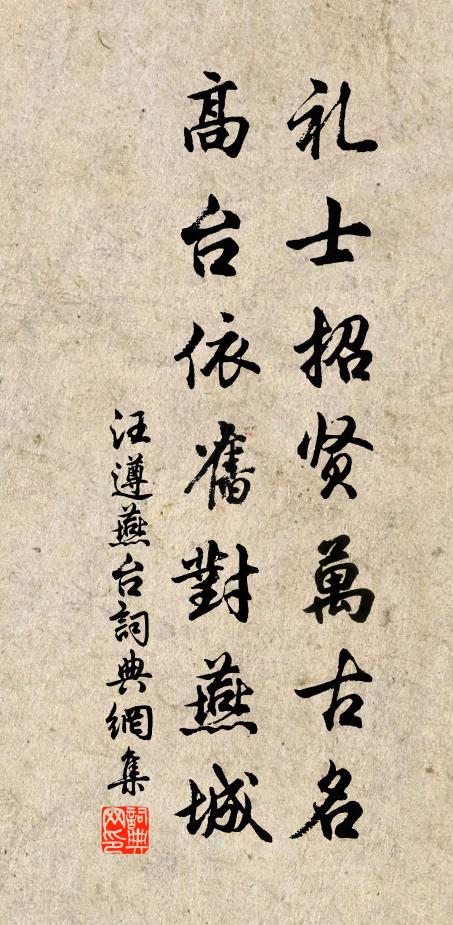 礼士招贤萬古名
高台依舊對燕城
汪遵燕台詞典網集
詞典网印